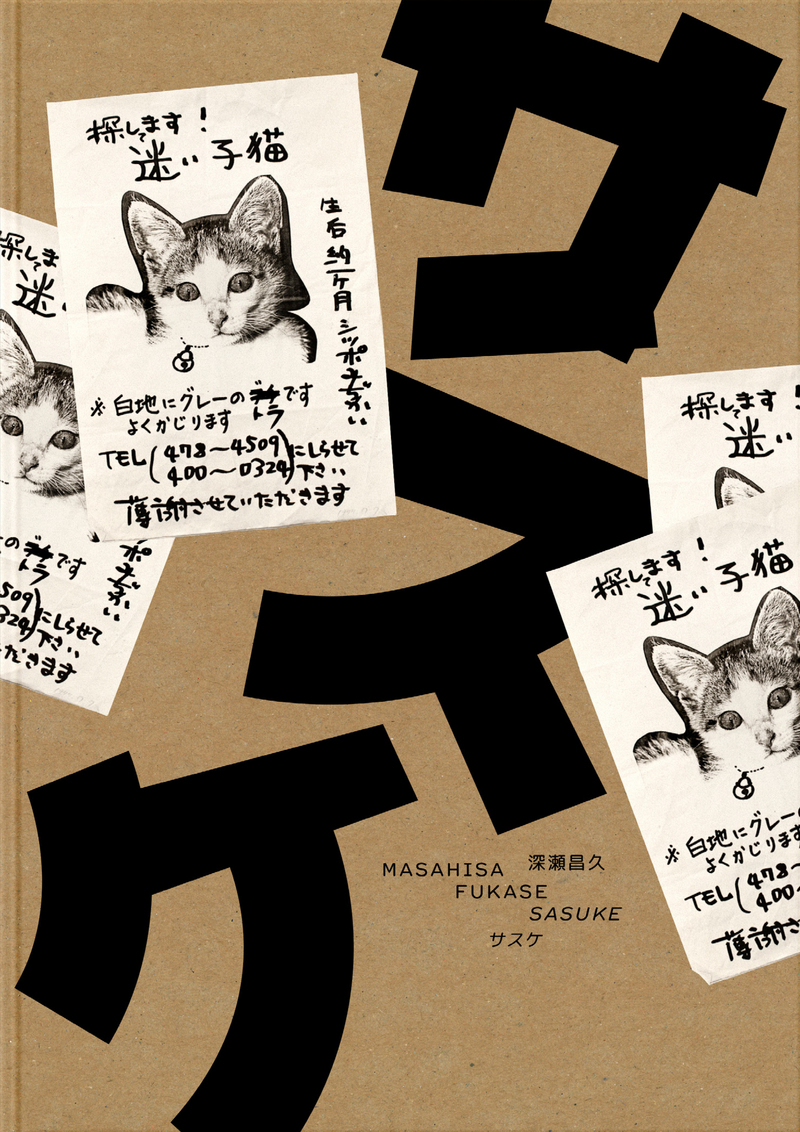 サスケ
探してます!
迷い子猫
生后約一ヶ月 シッポ
※白地にグレーの
トラ
です
よくかじります
TEL(478〜4509
400〜0329)にしらせて
下さい
薄謝させていただきます
探してま
迷
の
トラ
です
509
329)にしらせて
下さい
だきます
探してます!
迷い
探してます!
迷い子猫
※白地にグレー
よくかじります
TEL(478〜
400〜
薄謝さ
MASAHISA
FUKASE
SASUKE
深瀬昌久
サスケ